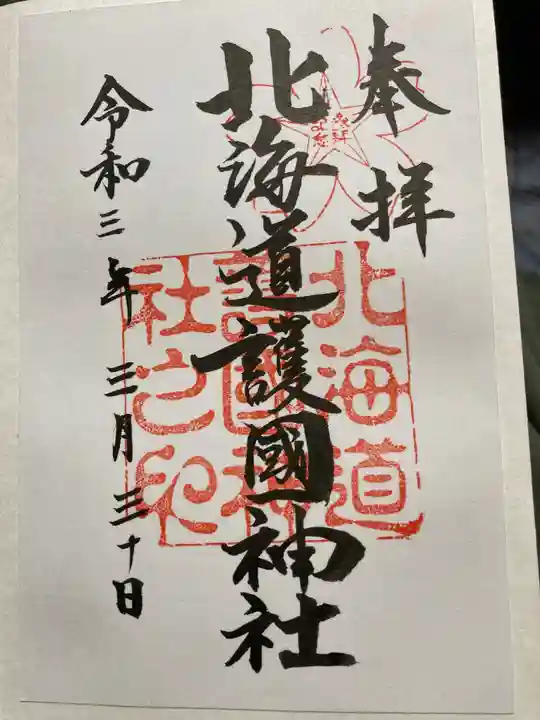 奉拝
北海道護國神社
令和三年三月三十日
北海道
護國神
社之印